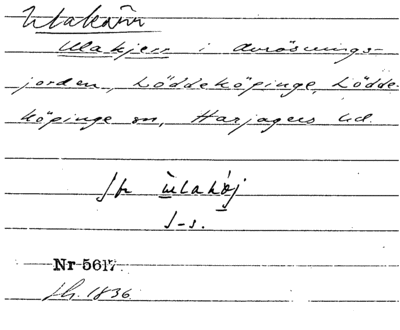 Ulakärr
Ulakjerr i avrösnings-
jorden, Löddeköpinge, Lödde-
köpinge sn, Harjagers hd.
Jfr ùlahǿj
s-s.
Nr 5617.
sk. 1836